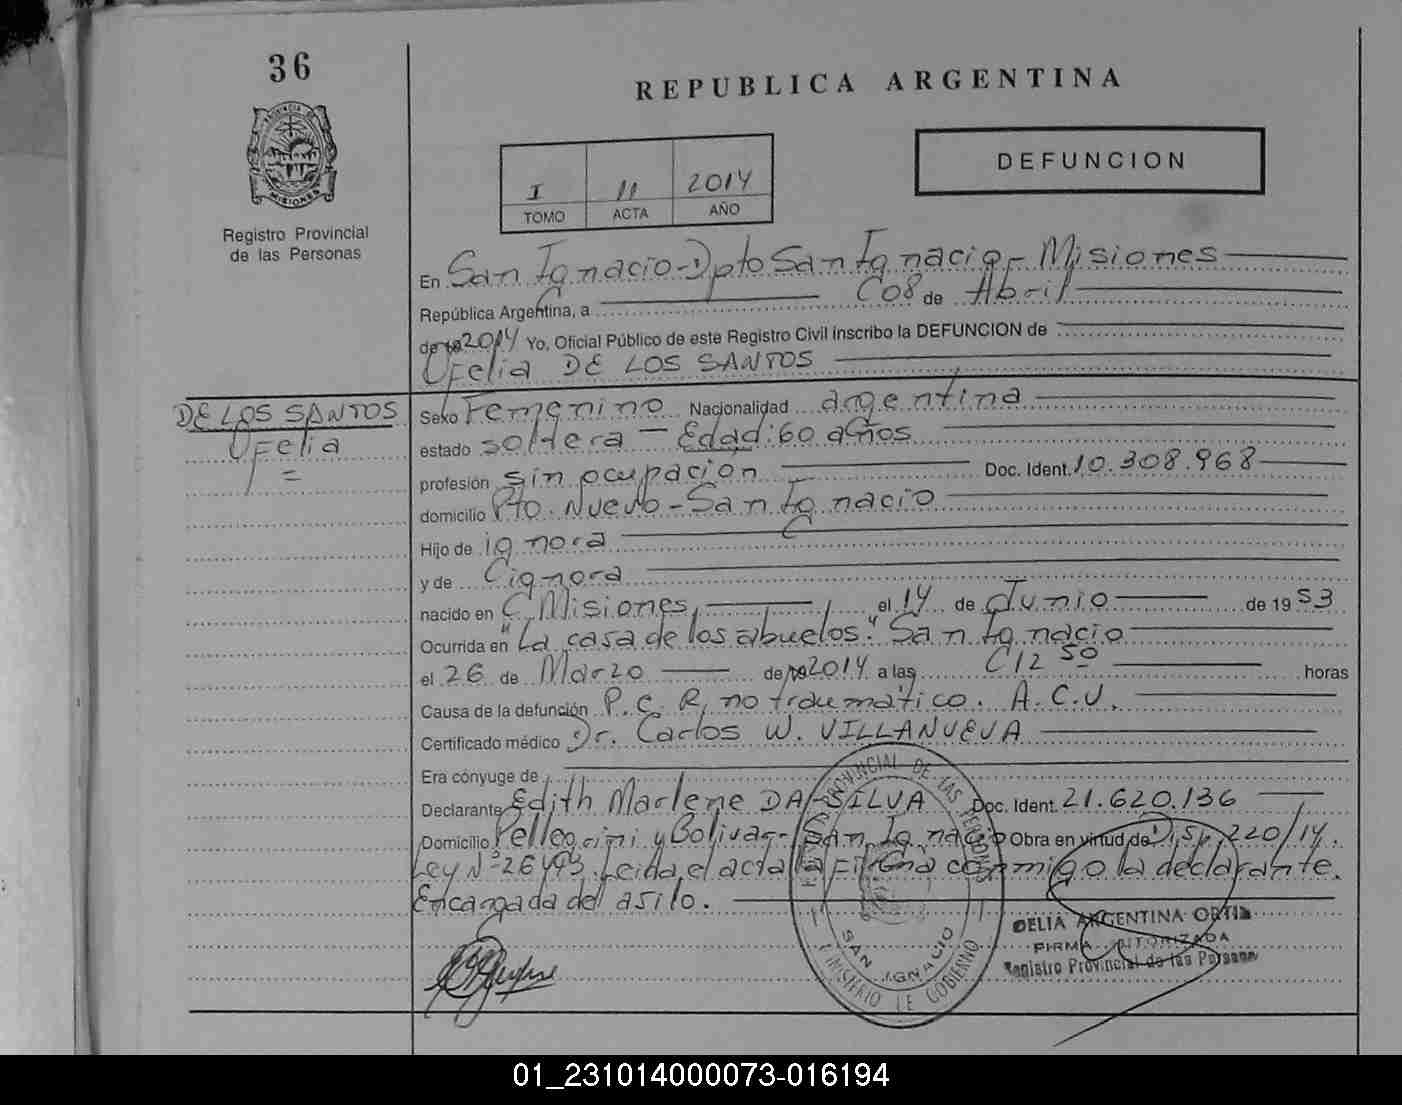 36
REPUBLICA ARGENTINA
DEFUNCION
I 11 2014
TOMO ACTA AÑO
PROVINCIA DE
MISIONES
Registro Provincial
de las Personas
En San Ignacio - Dpto San Ignacio - Misiones
República Argentina, a 08 de Abril
de 2014 Yo, Oficial Público de este Registro Civil inscribo la DEFUNCION de
Ofelia DE LOS SANTOS
DE LOS SANTOS
Ofelia
=
Sexo Femenino Nacionalidad argentina
estado soltera - Edad: 60 años
profesión sin ocupación Doc. Ident. 10.308.968
domicilio Pto. Nuevo - San Ignacio
Hijo de ignora
y de ignora
nacido en Misiones, el 14 de Junio de 1953
Ocurrida en "La casa de los abuelos." San Ignacio
el 26 de Marzo de 2014 a las 12 50 horas
Causa de la defunción P.C.R. no traumático. A.C.V.
Certificado médico Dr. Carlos W. VILLANUEVA
Era cónyuge de
Declarante Edith Marlene DA SILVA Doc. Ident. 21.620.136
Domicilio Pellegrini y Bolivar - San Ignacio Obra en virtud de Disp. 220/14.
Ley Nº 26493. Leida el acta la firma conmigo la declarante.
Encargada del asilo.
PROVINCIAL DE LAS PERSONAS
SAN IGNACIO
MINISTERIO DE GOBIERNO
DELIA ARGENTINA ORTIZ
FIRMA AUTORIZADA
Registro Provincial de las Personas
01_231014000073-016194